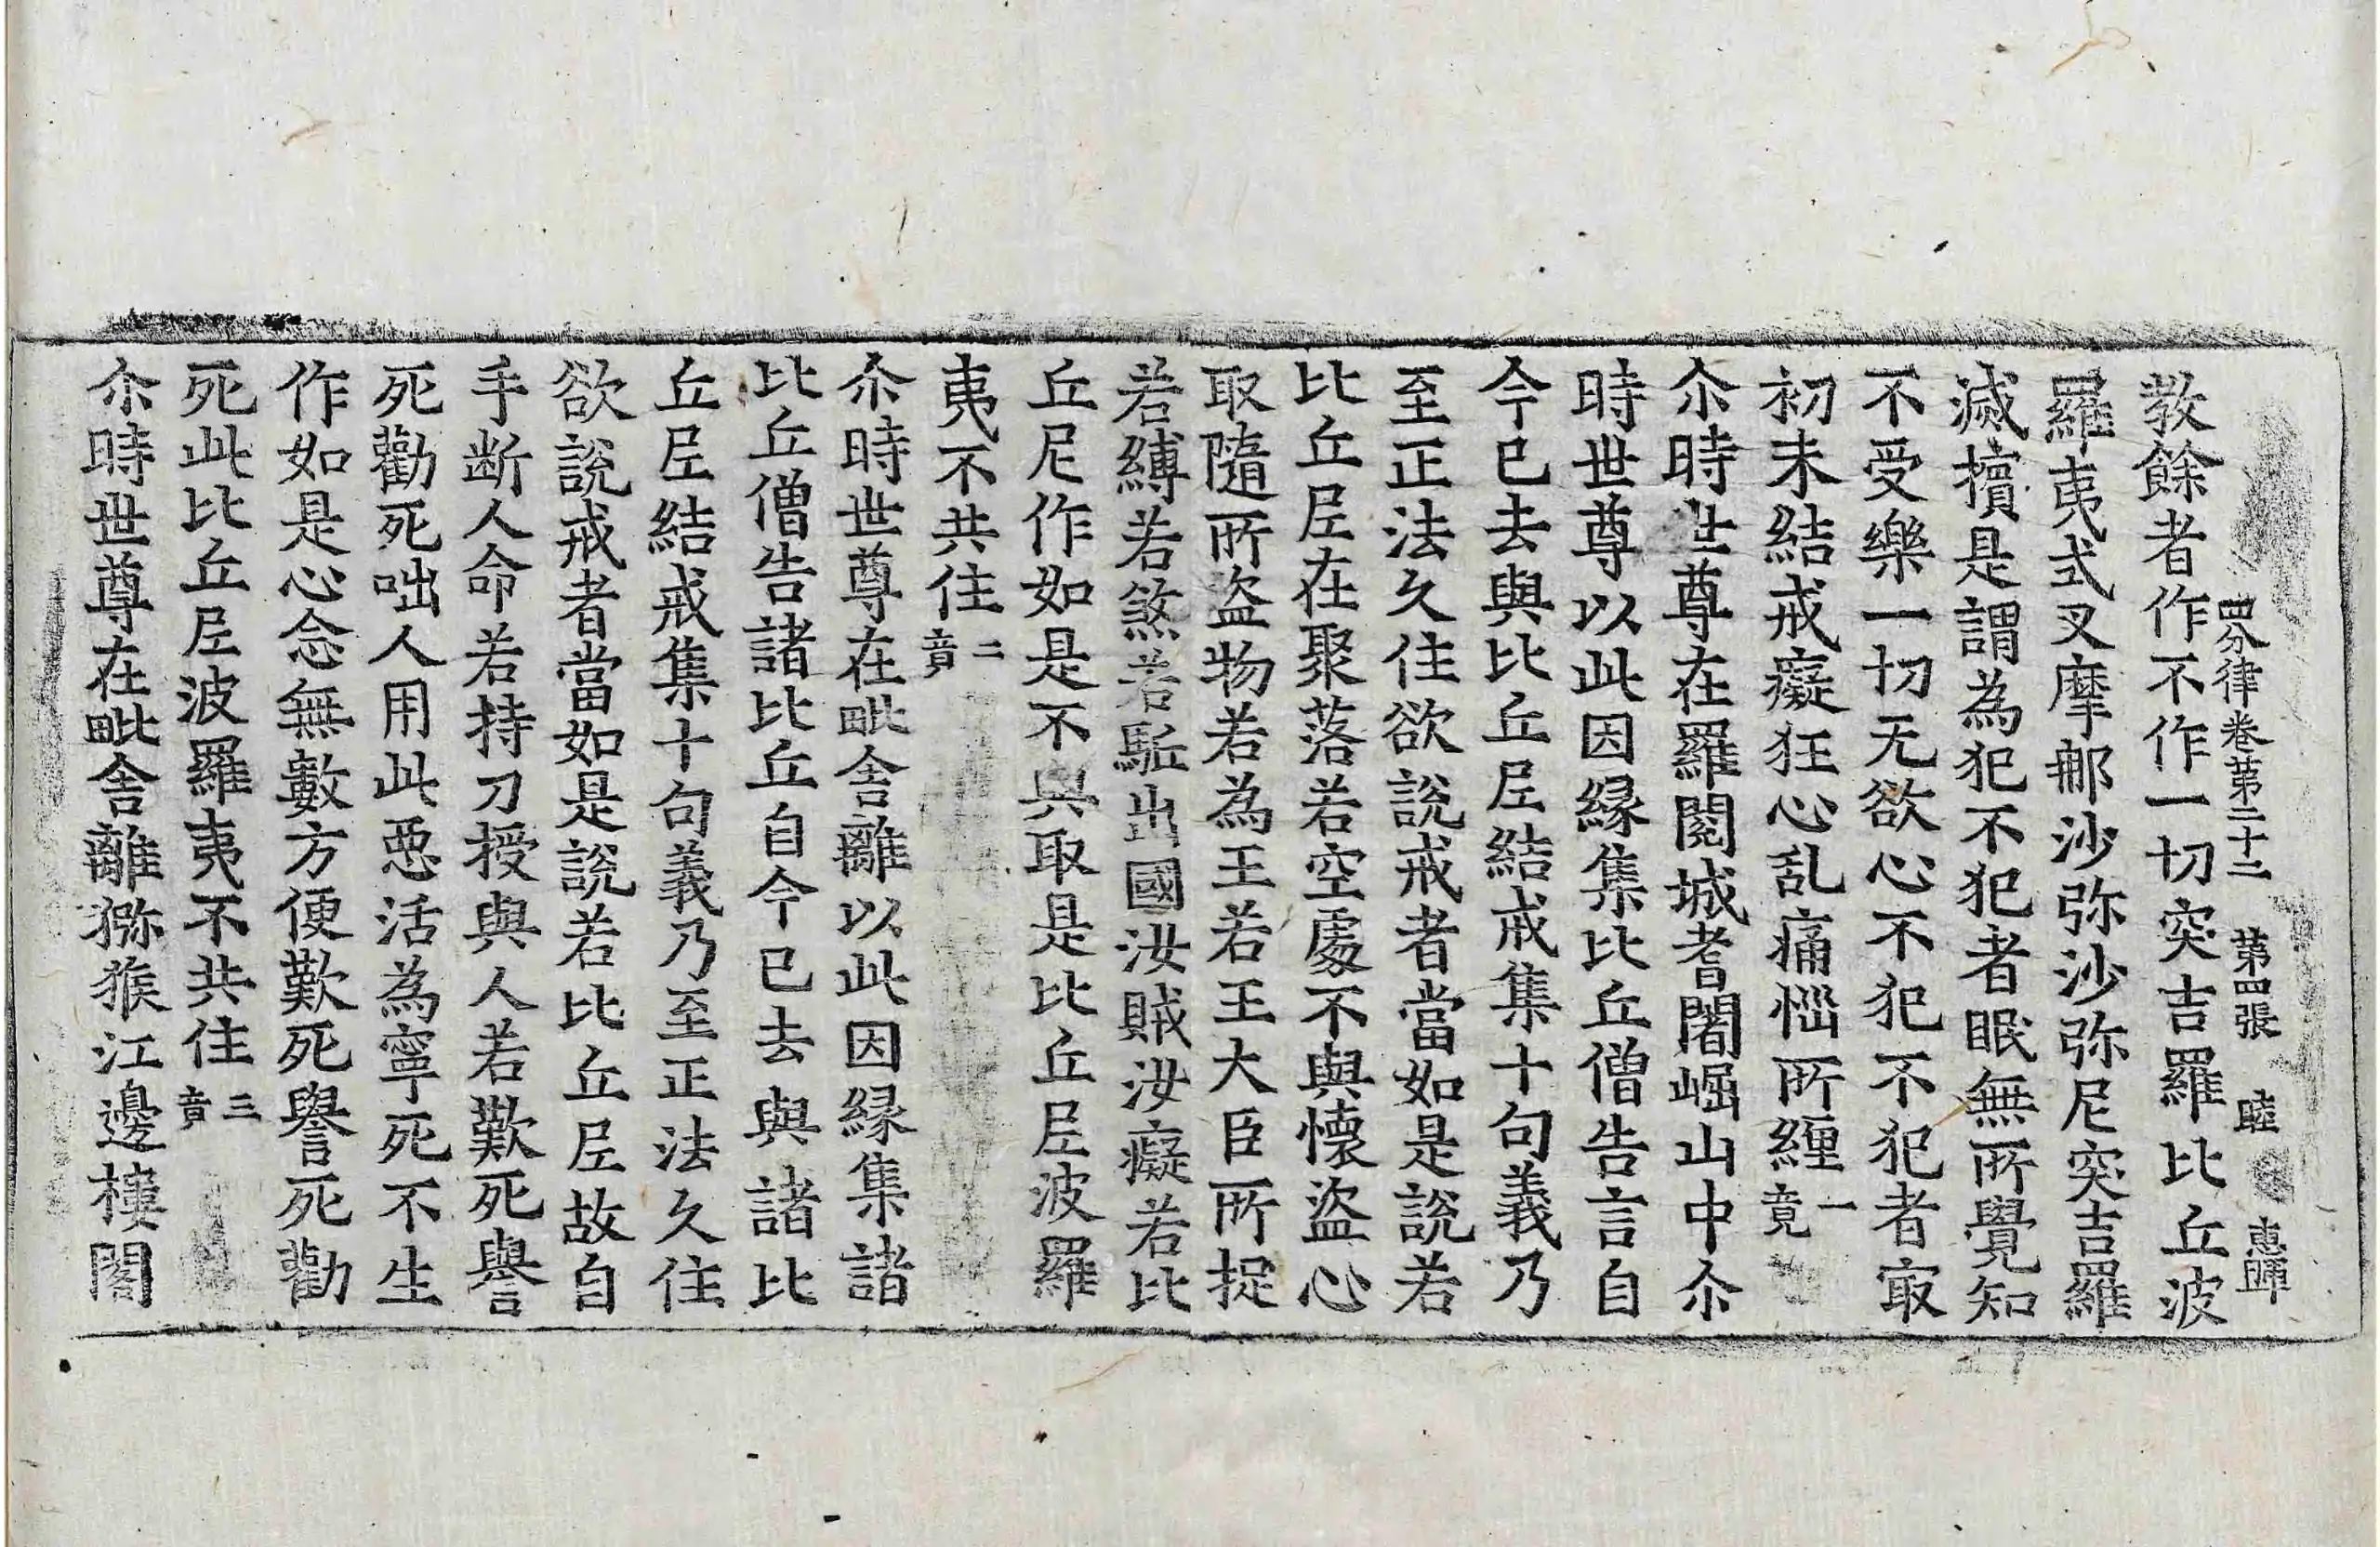 四分律卷第二十二 第四張 睦 惠歸
教餘者作不作一切突吉羅比丘波
羅夷式叉摩那沙弥沙弥尼突吉羅
滅擯是謂為犯不犯者眠無所覺知
不受樂一切无欲心不犯不犯者㝡
初未結戒癡狂心乱痛惱所纏一竟
尒時世尊在羅閱城耆闍崛山中尒
時世尊以此因縁集比丘僧告言自
今已去與比丘尼結戒集十句義乃
至正法久住欲說戒者當如是說若
比丘尼在聚落若空處不與懷盜心
取隨所盜物若為王若王大臣所捉
若縛若煞若駈出國汝賊汝癡若比
丘尼作如是不與取是比丘尼波羅
夷不共住二竟
尒時世尊在毗舍離以此因縁集諸
比丘僧告諸比丘自今已去與諸比
丘尼結戒集十句義乃至正法久住
欲說戒者當如是說若比丘尼故自
手断人命若持刀授與人若歎死譽
死勸死咄人用此惡活為寧死不生
作如是心念無數方便歎死譽死勸
死此比丘尼波羅夷不共住三竟
尒時世尊在毗舍離獼猴江邊樓閣